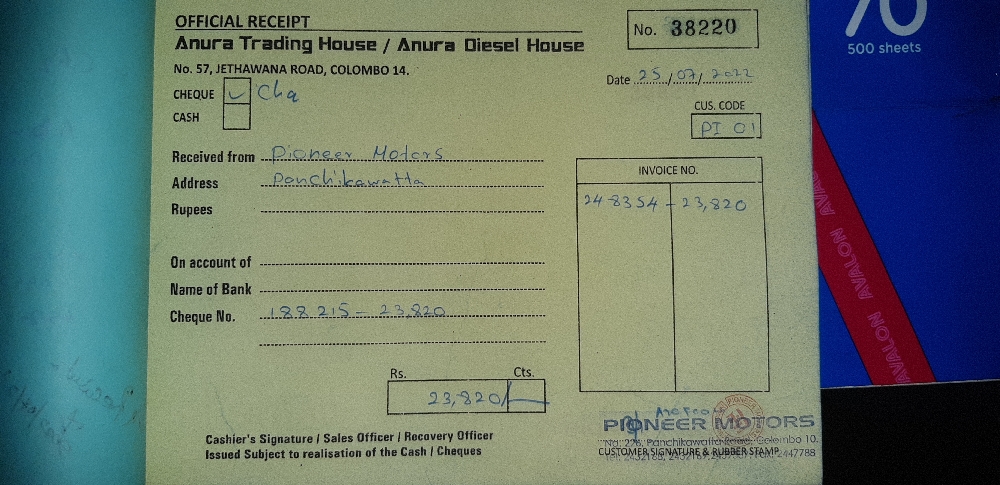 OFFICIAL RECEIPT
Anura Trading House / Anura Diesel House
No. 57, JETHAWANA ROAD, COLOMBO 14.
No. 38220
Date 25/07/2022
CHEQUE ✓ Chq
CASH
CUS. CODE
PI 01
Received from Pioneer Motors
Address Panchikawatta
Rupees
On account of
Name of Bank
Cheque No. 188215 - 23,820
INVOICE NO.
248354 - 23,820
Rs. Cts.
23,820/-
Cashier's Signature / Sales Officer / Recovery Officer
Issued Subject to realisation of the Cash / Cheques
PIONEER MOTORS
No: 226, Panchikawatta Road, Colombo 10.
CUSTOMER SIGNATURE & RUBBER STAMP
70
500 sheets
AVALON AVALON AVALON